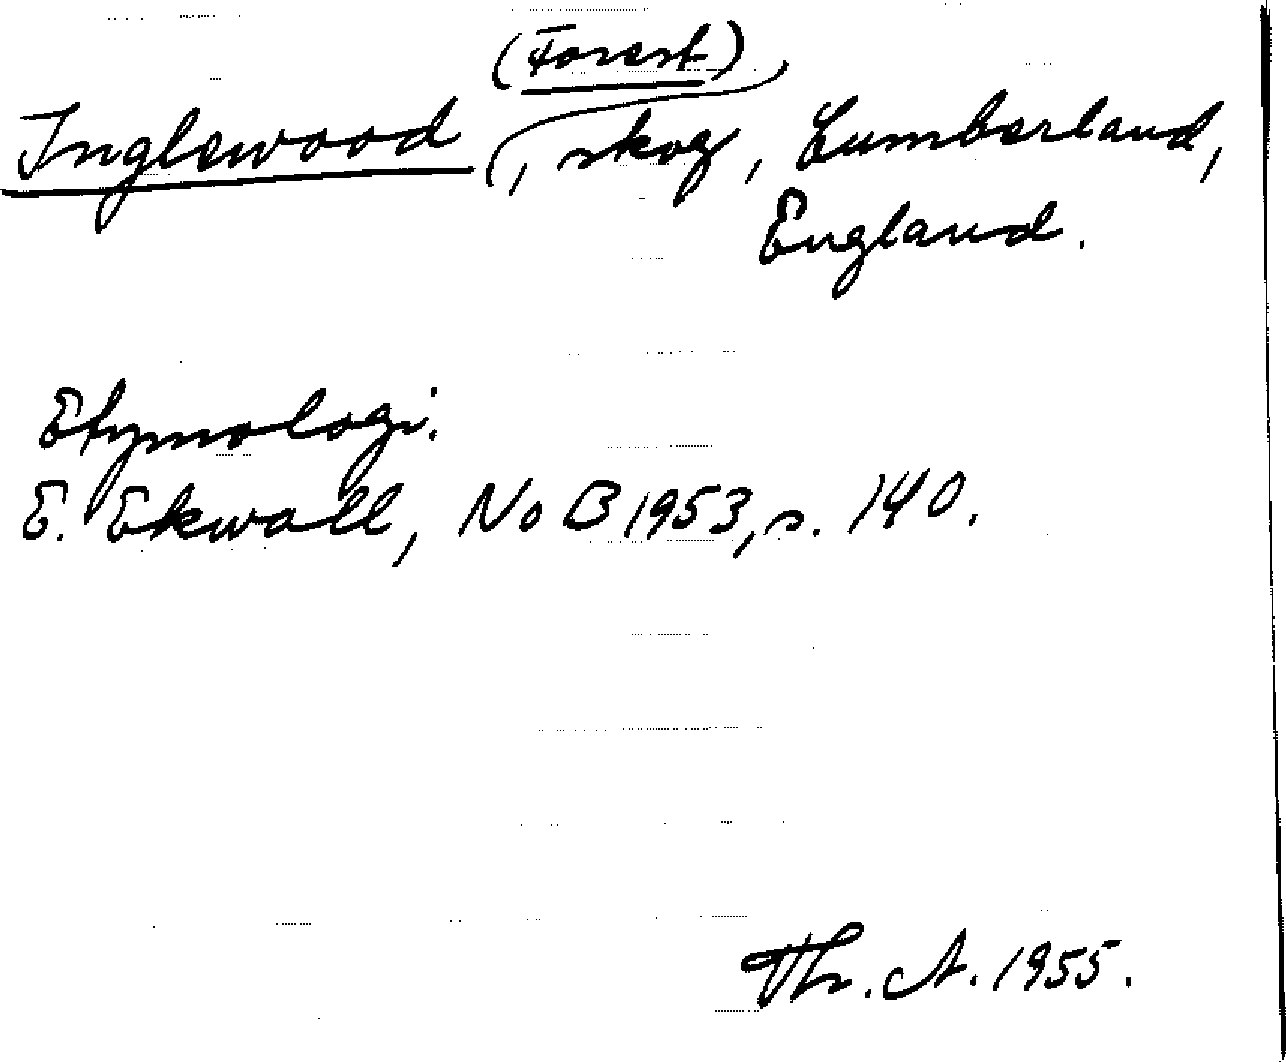 (Forest)
Inglewood, skog, Cumberland,
England.
Etymologi.
E. Ekwall, NoB 1953, s. 140.
Th. A. 1955.